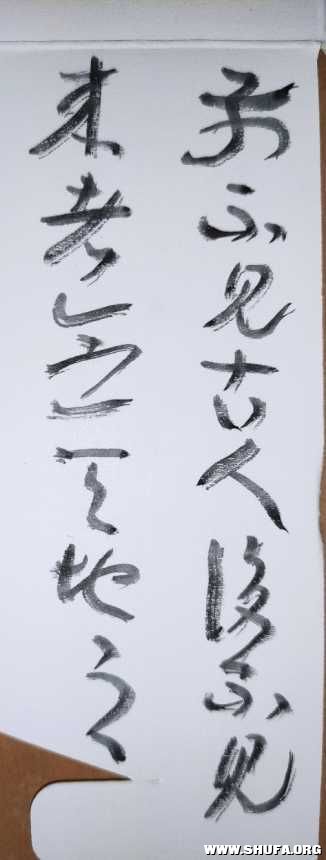 前不見古人後不見
来者念天地之
WWW.SHUFA.ORG